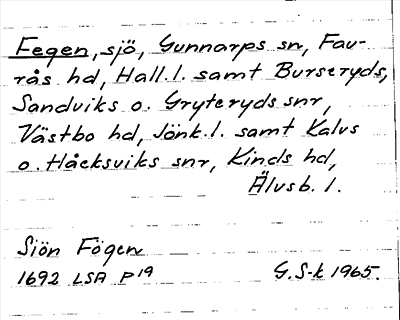 Fegen, sjö, Gunnarps sn, Fau-
rås hd, Hall.l. samt Burseryds,
Sandviks o. Gryteryds snr,
Västbo hd, Jönk.l. samt Kalvs
o. Håcksviks snr, Kinds hd,
Älvsb. l.
Siön Fögen
1692 LSA P 19
G.S-k 1965.